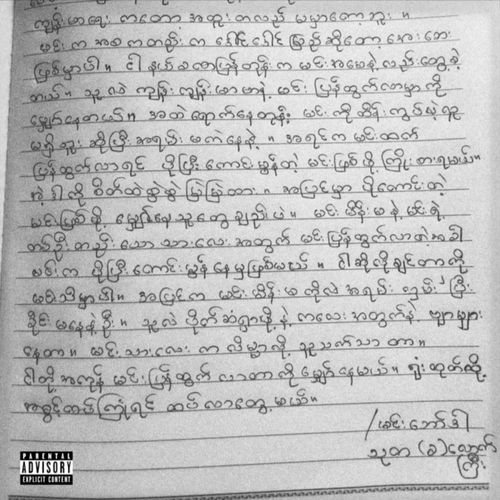 ကျန်းမာရေး ကတော့ အထူးတလည် မပူဘာတော့ဘူး ။
မင်းက အစ ကတည်း က ပေါင်ပေါင် မြည် ဆိုတော့ အေးဆေး
ဖြစ်မှာပါ ။ ငါ နယ်ခဏပြန်တုန်း က မင်း အမေနဲ့လည်းတွေ့ ခဲ့
တယ် ။ သူ လဲ ကျန်း ကျန်းမာမာနဲ့ မင်း ပြန်ထွက်လာမှာ ကို
မျှော်နေတယ် ။ အထဲရောက်နေတုန်း မင်း ကို ထိန်း ကွပ်မဲ့ လူ
မရှိဘူး ဆိုပြီး အရမ်း မကဲနေနဲ့ ။ အရင်က မင်းထက်
ပြန်ထွက်လာရင် ပိုပြီး ကောင်းမွန်တဲ့ မင်းဖြစ်ဖို့ ကြိုးစားရမယ် ။
အဲ့ဒါကို စိတ်ထဲစွဲစွဲ မြဲမြဲထား ။ အပြင်မှာ ပိုကောင်းတဲ့
မင်းဖြစ်ဖို့ မျှော်နေသူတွေချည်းပဲ ။ မင်းမိန်းမနဲ့ မင်းရဲ့
တစ်ဦးတည်းသော သားလေးအတွက် မင်းပြန်ထွက်လာတဲ့အခါ
မင်းက ပိုပြီး ကောင်းမွန်နေမှဖြစ်မယ် ။ ငါဆိုလိုချင်တာကို
မင်းသိမှာပါ ။ အပြင်က မင်းမိန်းမကိုလဲ အရမ်း
စိုင်းမနေနဲ့ဦး ။ သူလဲ ဗိုက်ဆံရှာဖို့နဲ့ ကလေးအတွက်နဲ့ ဗျာများ
နေတာ ။ မင်းသားလေး က လိမ္မာလို့ နူးသက်သာတာ ။
ငါတို့အကုန် မင်းပြန်ထွက်လာတာကို မျှော်နေမယ် ။ ရုံးထုတ်လို့
အခွင့်ထပ်ကြုံရင် ထပ်လာတွေ့မယ် ။
/မင်းဘော်ဒါ
သုတ (ခ) လျှောက်
ကြီး
PARENTAL
ADVISORY
EXPLICIT CONTENT